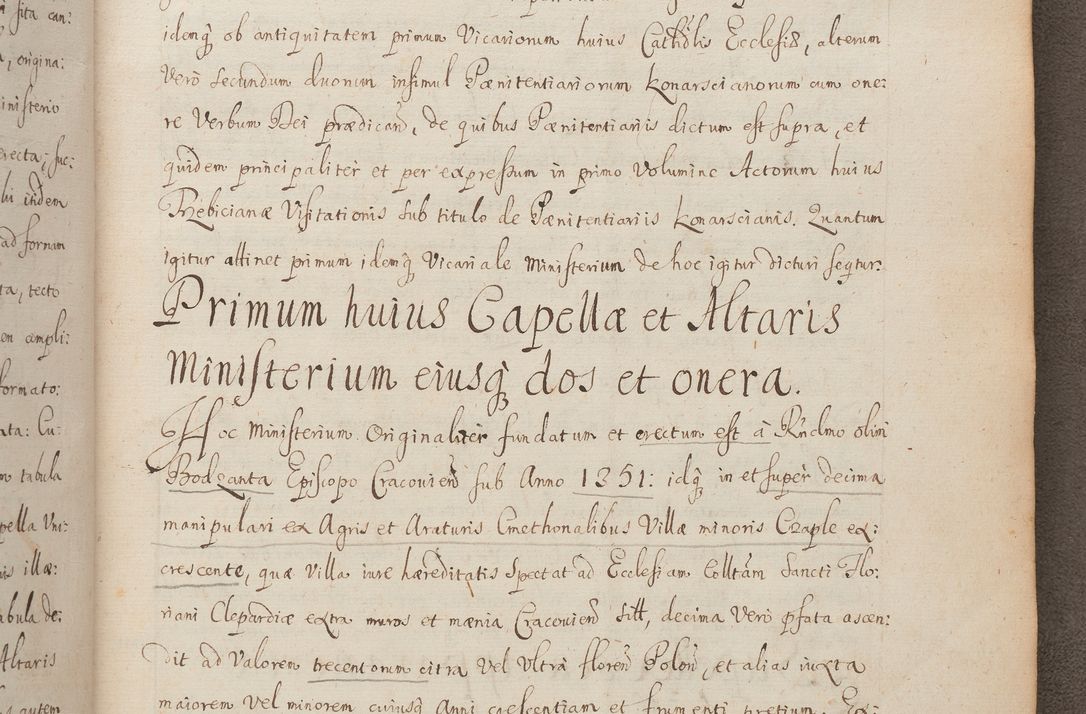 sita can:
idemq; ob antiquitatem primum Vicariorum huius Cathðlis Ecclesiæ, alterum
, origina:
Verò secundum duorum insimul Pœnitentiariorum Konarscianorum cum one:
inisterio
re Verbum Dei prædicañ, de quibus Pœnitentiariis dictum est supra, et
erecta; suc:
quidem principaliter et per expressum in primo Volumine Actorum huius
iidem
Trzebicianæ Visitationis sub titulo de Pœnitentiariis Konarscianis. Quantum
ad formam
igitur attinet primum idemq; Vicariale Ministerium de hoc igitur dicturi seqtur:
ta, tecto
Primum huius Capellæ et Altaris
en ampli:
Ministerium eiusq; dos et onera.
formato:
Hoc Ministerium Originaliter fundatum et erectum est à Rñdmo olim
ata: Cu-
Bodzanta Episcopo Cracovieñ sub Anno 1351: idq; in et super decima
tabula
manipulari ex Agris et Araturis Cmethonalibus Villæ minoris Czaple ex:
pella Vni:
crescente, quæ Villa iure hæreditatis Spectat ad Ecclesiam Colltãm Sancti Flo:
illæ:
riani Clepardiæ extra muros et mænia Cracovieñ sitt, decima Verò pfata ascen:
abula de:
dit ad Valorem trecentorum citra Vel Vltrà floreñ Poloñ, et alias iuxta
Altaris
maiorem Vel minorem cuiusq; Anni crescentiam et frumenti pretium. Ex:
autem